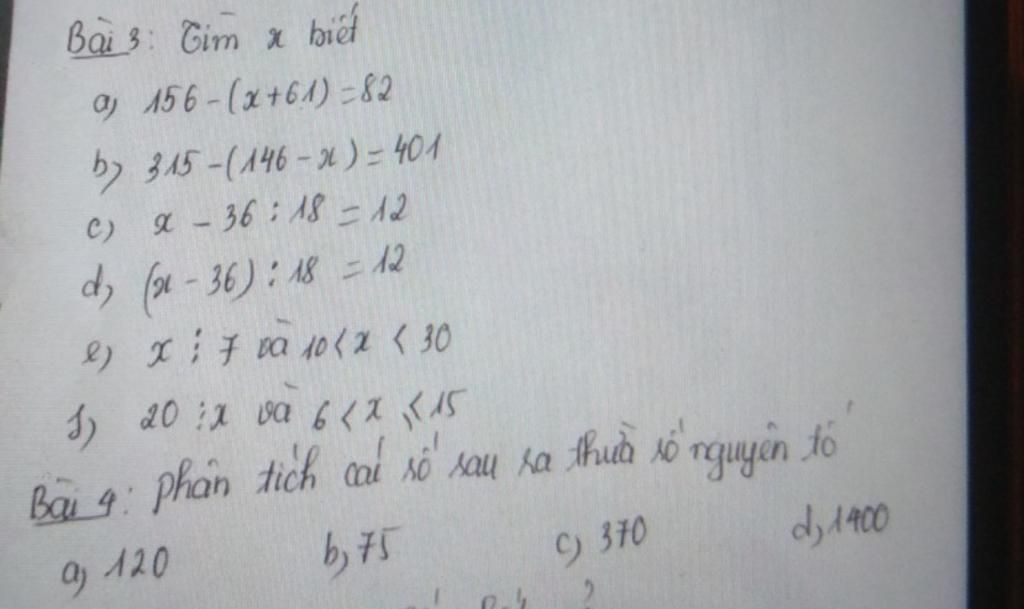 Bài 3: Tìm x biết
a) 156 - (x+61) = 82
b) 315 - (146 - x) = 401
c) x - 36 : 18 = 12
d) (x - 36) : 18 = 12
e) x ⋮ 7 và 10 < x < 30
f) 20 ⋮ x và 6 < x ⩽ 15
Bài 4: phân tích các số sau ra thừa số nguyên tố
a) 120 b) 75 c) 370 d) 1400